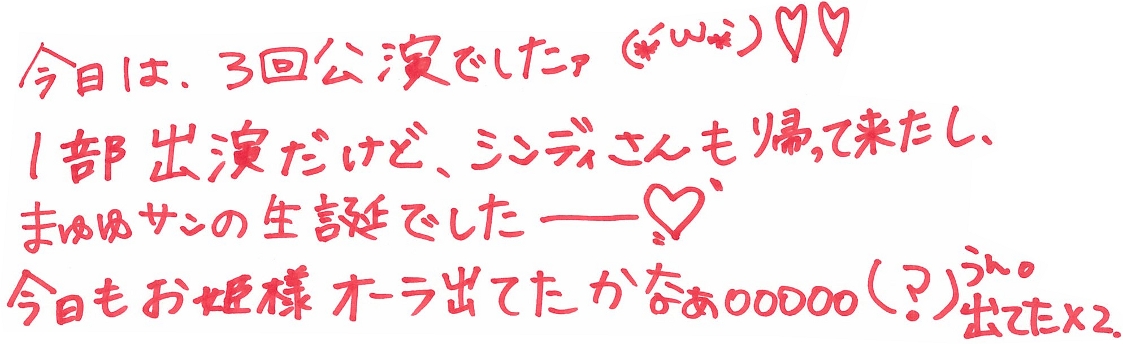 今日は、3回公演でしたァ (*´ω*`)♡♡
1部出演だけど、シンディさんも帰って来たし、
まゆゆサンの生誕でした――♡
今日もお姫様オーラ出てたかなぁ○○○○○(?)うん。出てた×2.